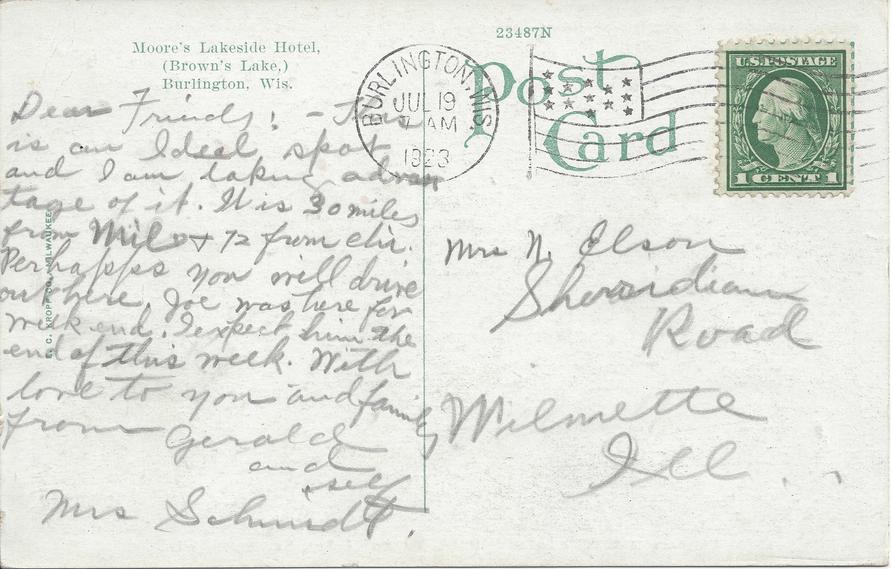 23487N
Moore's Lakeside Hotel,
(Brown's Lake,)
Burlington, Wis.
Post
Card
BURLINGTON, WIS.
JUL 19
7 AM
1923
U.S. POSTAGE
1 CENT 1
Dear Friends; - This
is an Ideal spot
and I am taking advan
tage of it. It is 30 miles
from Mil & 72 from chi.
Perhapps you will drive
out here. Joe was here for
week end. I expect him the
end of this week. With
love to you and family
from Gerald
and
self
Mrs Schmidt.
E. C. KROPP CO., MILWAUKEE
Mrs N. Elson
Sherridian
Road
Wilmette
Ill..